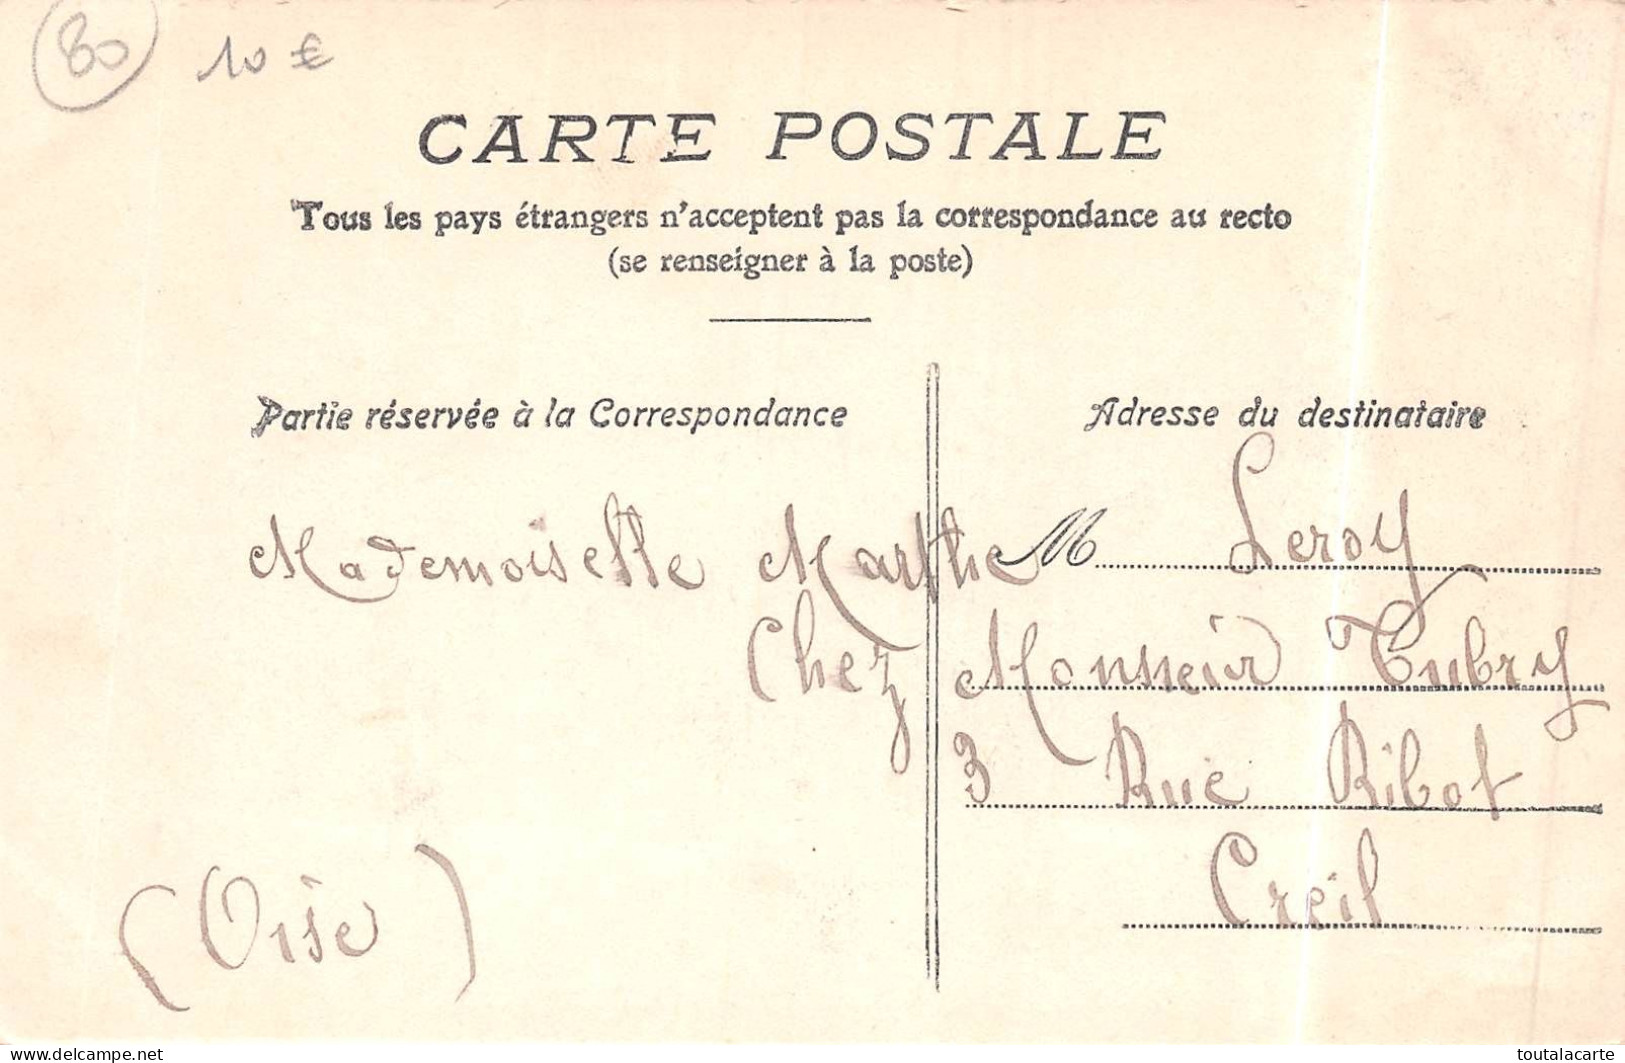 80 10 €
CARTE POSTALE
Tous les pays étrangers n'acceptent pas la correspondance au recto
(se renseigner à la poste)
Partie réservée à la Correspondance
Adresse du destinataire
Mademoiselle Marthe M Leroy
Chez Monsieur Tubry
3 Rue Ribot
Creil
(Oise)
delcampe.net
toutalacarte